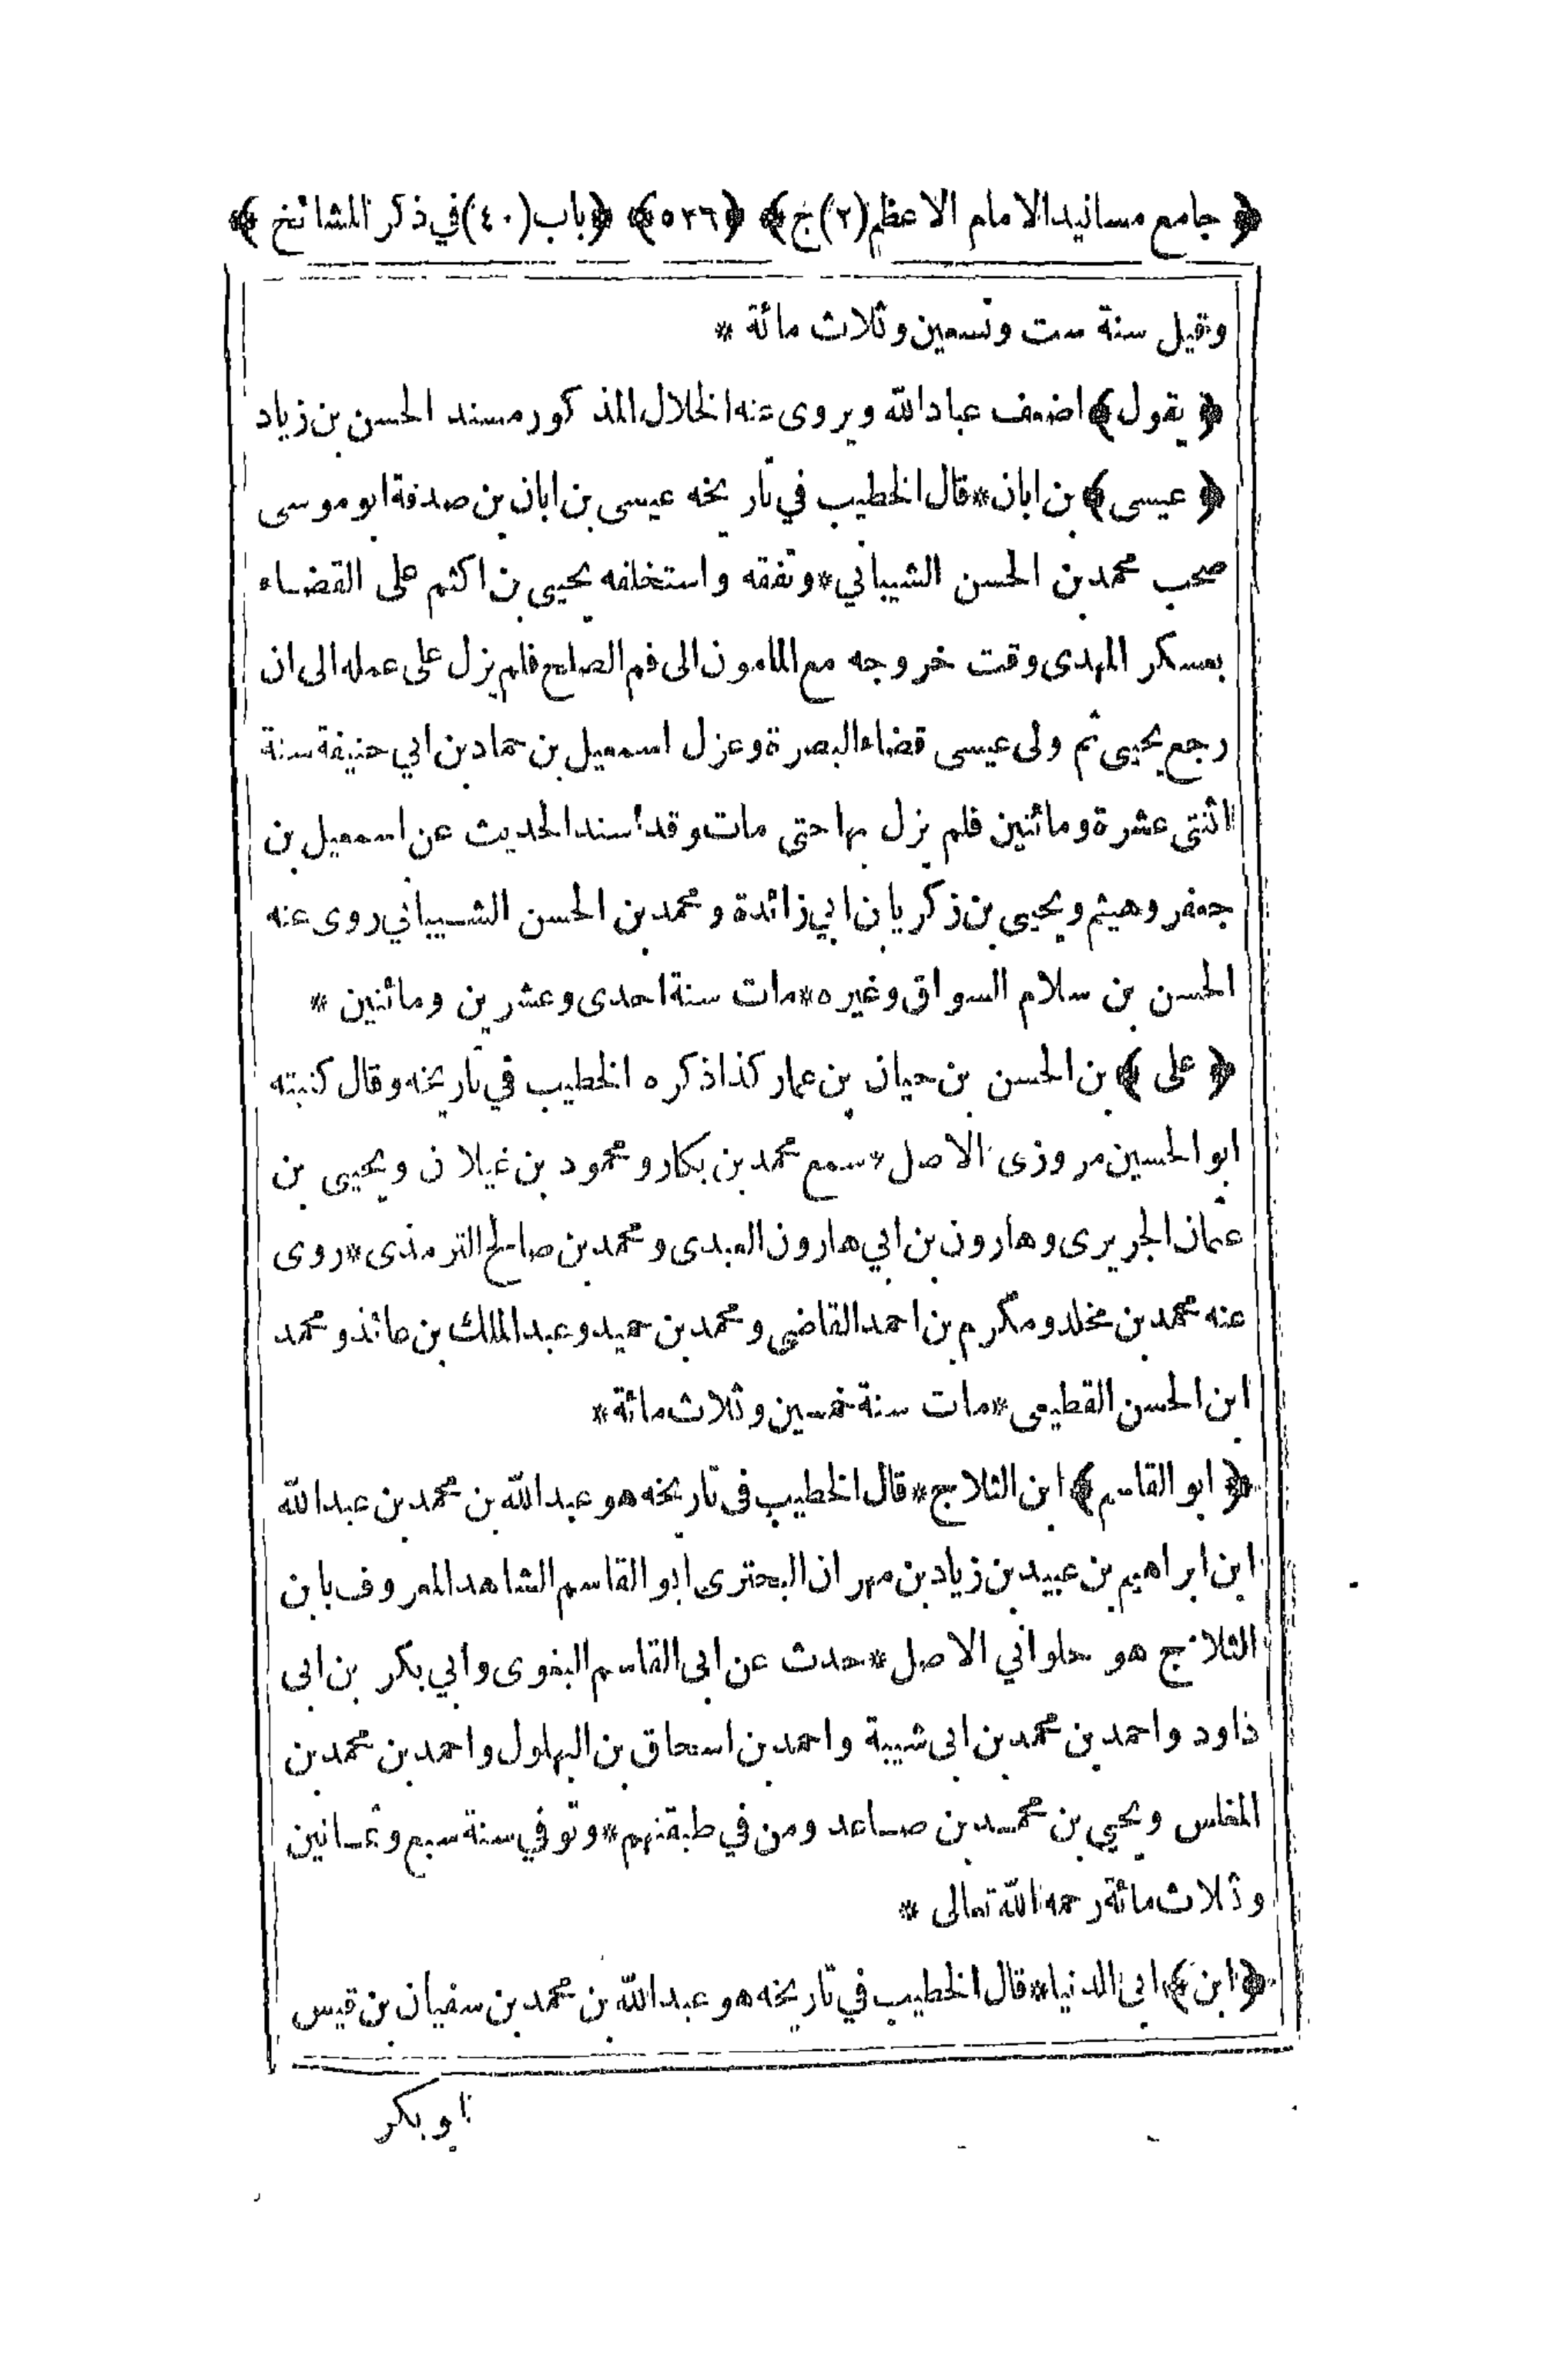 ﴿ جامع مسانيد الامام الاعظم (٢) ج ﴾ ﴿ ٥٣٦ ﴾ ﴿ باب (٤٠) في ذكر المشائخ ﴾
وقيل سنة ست وتسعين وثلاث مائة *
﴿ يقول ﴾ اضعف عباد الله ويروى عنه الخلال المذكور مسند الحسن بن زياد
﴿ عيسى ﴾ بن ابان * قال الخطيب في تاريخه عيسى بن ابان بن صدقة ابو موسى
صحب محمد بن الحسن الشيباني * وتفقه واستخلفه يحيى بن اكثم على القضاء
بعسكر المهدى وقت خروجه مع المامون الى فم الصلح فلم يزل على عمله الى ان
رجع يحيى ثم ولى عيسى قضاء البصرة وعزل اسمعيل بن حماد بن ابي حنيفة سنة
اثنتى عشرة ومائتين فلم يزل بها حتى مات وقد اسند الحديث عن اسمعيل بن
جعفر وهيثم ويحيى بن زكريا بن ابي زائدة ومحمد بن الحسن الشيباني روى عنه
الحسن بن سلام السواق وغيره * مات سنة احدى وعشرين ومائتين *
﴿ على ﴾ بن الحسن بن حيان بن عمار كذا ذكره الخطيب في تاريخه وقال كنيته
ابو الحسين مروزى الاصل * سمع محمد بن بكار ومحمود بن غيلان ويحيى بن
عثمان الجريرى وهارون بن ابي هارون العبدى ومحمد بن صالح الترمذى * روى
عنه محمد بن مخلد ومكرم بن احمد القاضي ومحمد بن حميد وعبد الملك بن عائذ ومحمد
ابن الحسن القطيعى * مات سنة خمسين وثلاث مائة *
﴿ ابو القاسم ﴾ ابن الثلاج * قال الخطيب فى تاريخه هو عبد الله بن محمد بن عبد الله
ابن ابراهيم بن عبيد بن زياد بن مهران البحترى ابو القاسم الشاهد المعروف بابن
الثلاج هو حلواني الاصل * حدث عن ابى القاسم البغوى وابي بكر بن ابى
داود واحمد بن محمد بن ابى شيبة واحمد بن اسحاق بن البهلول واحمد بن محمد بن
المغلس ويحيي بن محمد بن صاعد ومن في طبقتهم * وتوفي سنة سبع وثمانين
وثلاث مائة رحمه الله تعالى *
﴿ ابن ﴾ ابى الدنيا * قال الخطيب في تاريخه هو عبد الله بن محمد بن سفيان بن قيس
ابو بكر